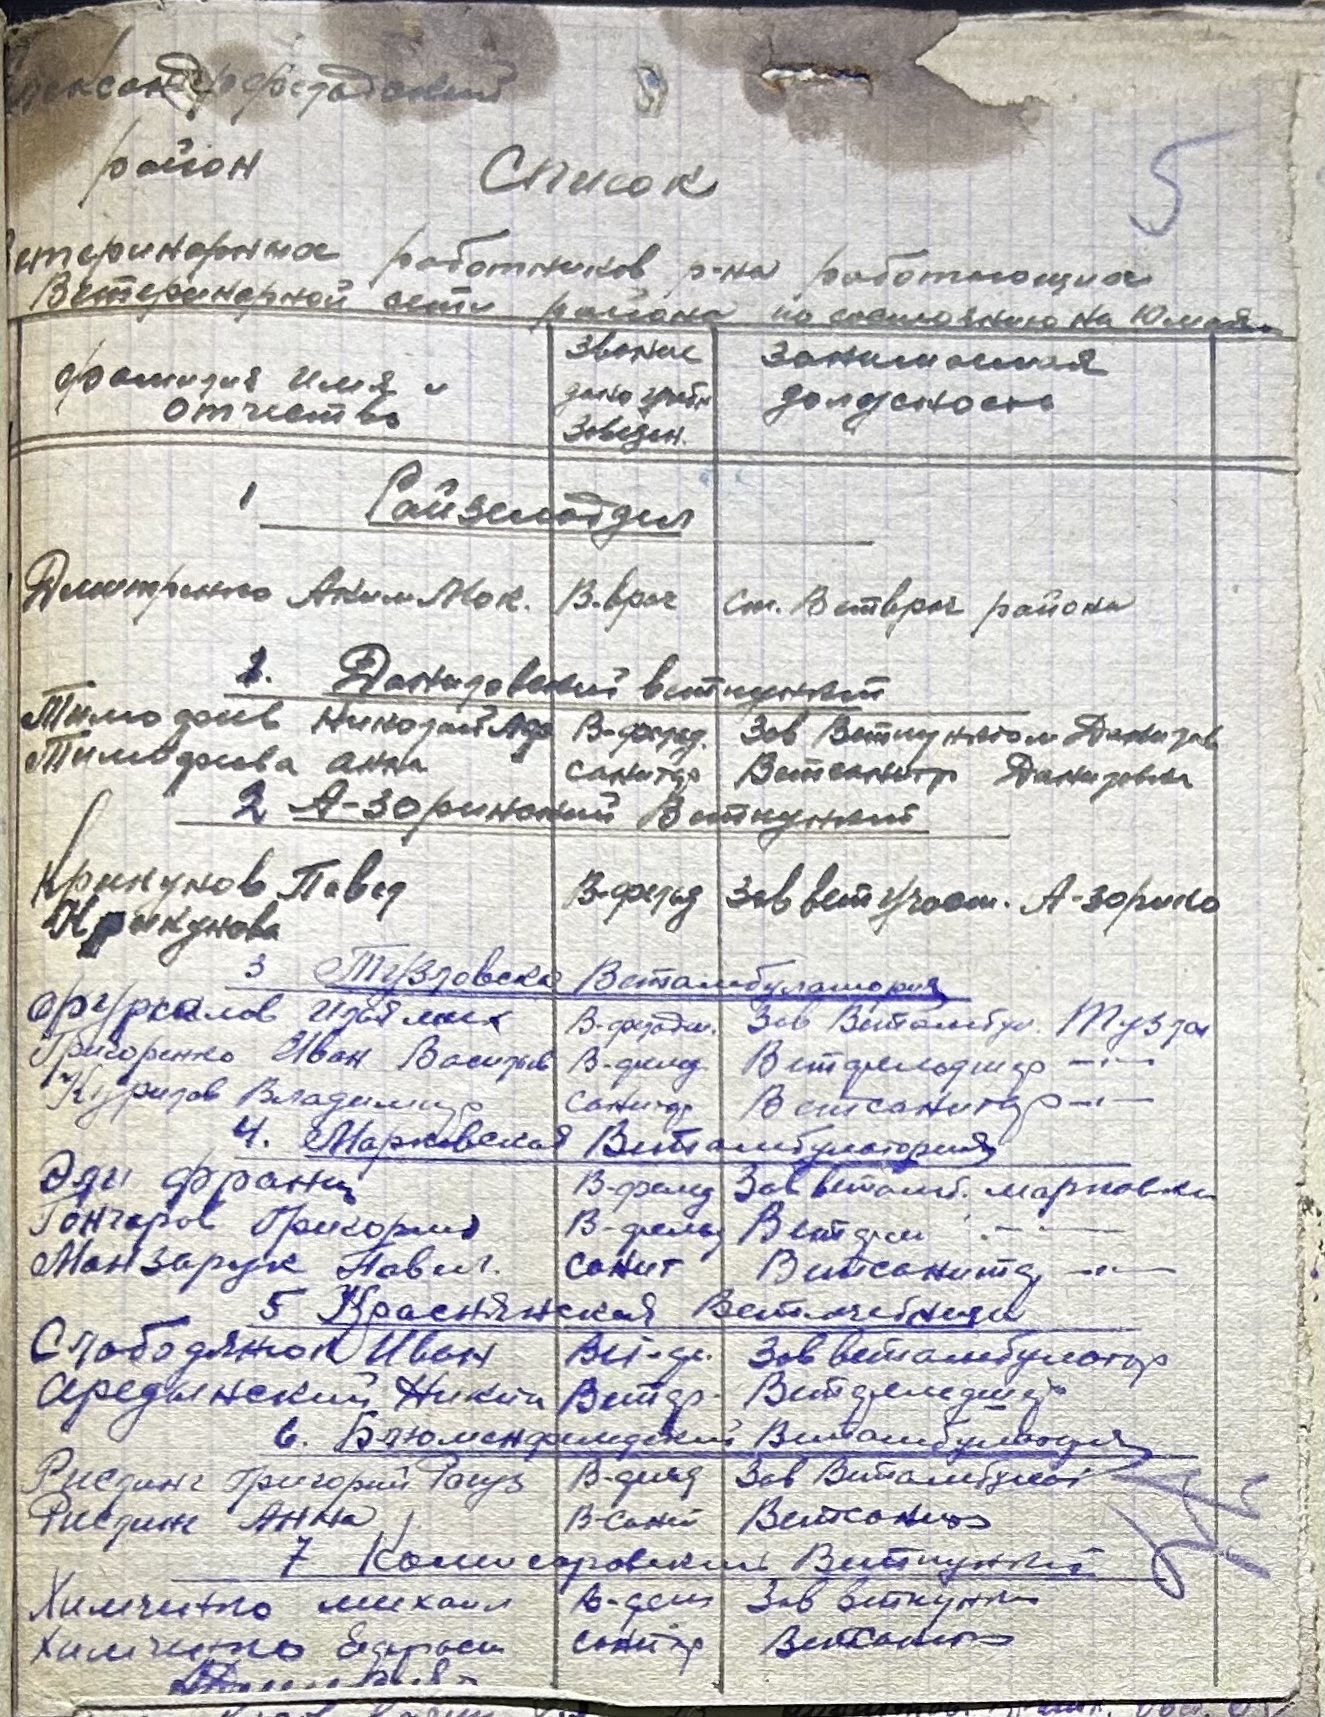 Александрфельдский
район
Список
Ветеринарных работников р-на работающих
Ветеринарной сети района по состоянию на 10 мая
Фамилия имя и отчество
Звание дано учебн Заведен.
Занимаемая должность
1 Райземотдел
Дмитренко Аким Мок. В.врач Ст. Ветврач района
1. Даниловский ветпункт
Тимофеев Николай В-фельд. Зав Ветпунктом Данилов
Тимофеева Анна санитар Ветсанитр Даниловка
2 А-Зоринский Ветпункт
Крикунов Павел В-фельд Зав вет участ. А-Зорино
Крикунова
3 Тузловска Ветамбулатория
В-фельдш. Зав Ветамбул. Тузлы
Григоренко Иван Васильев В-фельд. Ветфельдшер —"—
Курилов Владимир санитар Ветсанитар —"—
4. Марковская Ветамбулатория
Эди Франц В-фельд Зав ветамб. Марковки
Гончаров Григорий В-фельд Ветфел —"—
Манзарук Павел. санит Ветсанитар —"—
5 Краснянская Ветлечебница
Слободянюк Иван Вет-ф. Зав ветамбулатор
Средынский Никит Ветфр. Ветфельдшер
6. Блюменфельдский Ветамбулатория
Григорий В-фельд Зав Ветамбулат
Анна В-санит Ветсанит
7 Комисаровский Ветпункт
Химченко Михаил В-фел Зав ветпункт
Химченко санитар Ветсанит
5